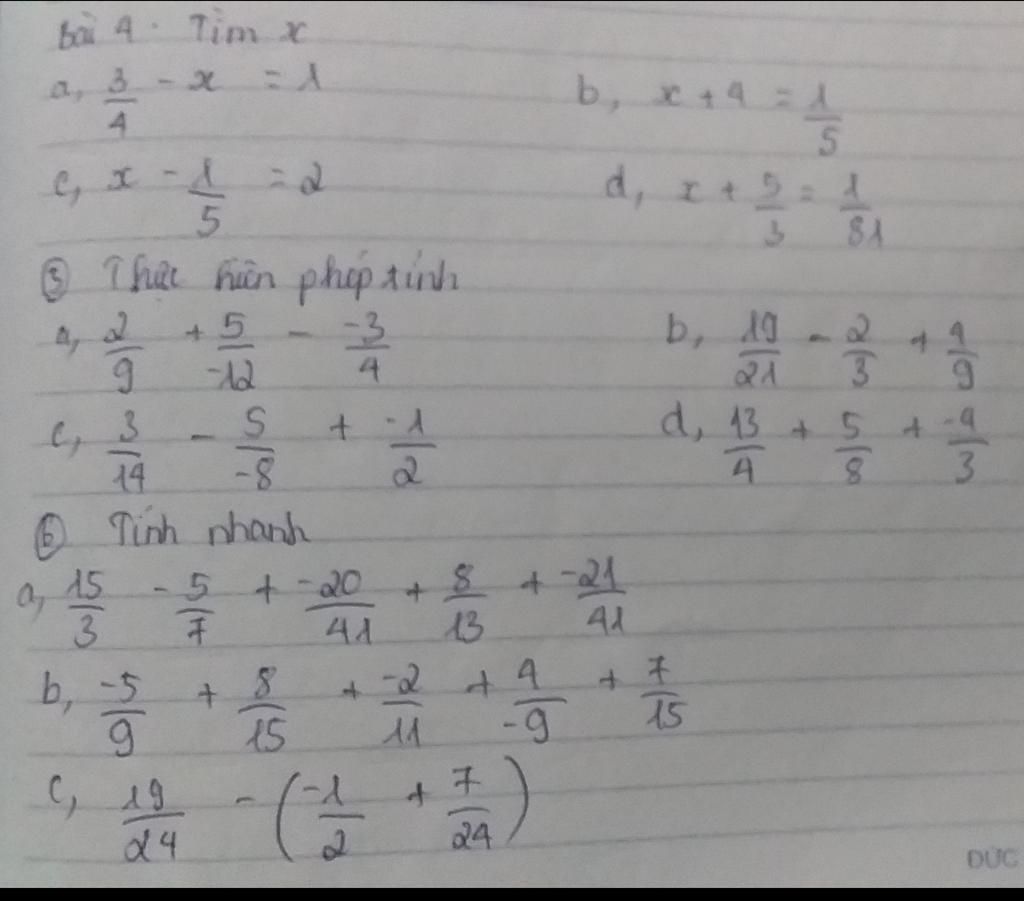 Bài 4. Tìm x
a, 3/4 - x = 1
b, x + 4 = 1/5
c, x - 1/5 = 2
d, x + 5/3 = 1/81
⑤ Thực hiện phép tính
a, 2/9 + 5/-12 - -3/4
b, 19/21 - 2/3 + 4/9
c, 3/14 - 5/-8 + -1/2
d, 13/4 + 5/8 + -4/3
⑥ Tính nhanh
a, 15/3 - 5/7 + -20/41 + 8/13 + -21/41
b, -5/9 + 8/15 + -2/11 + 4/-9 + 7/15
c, 19/24 - (-1/2 + 7/24)
ĐỨC